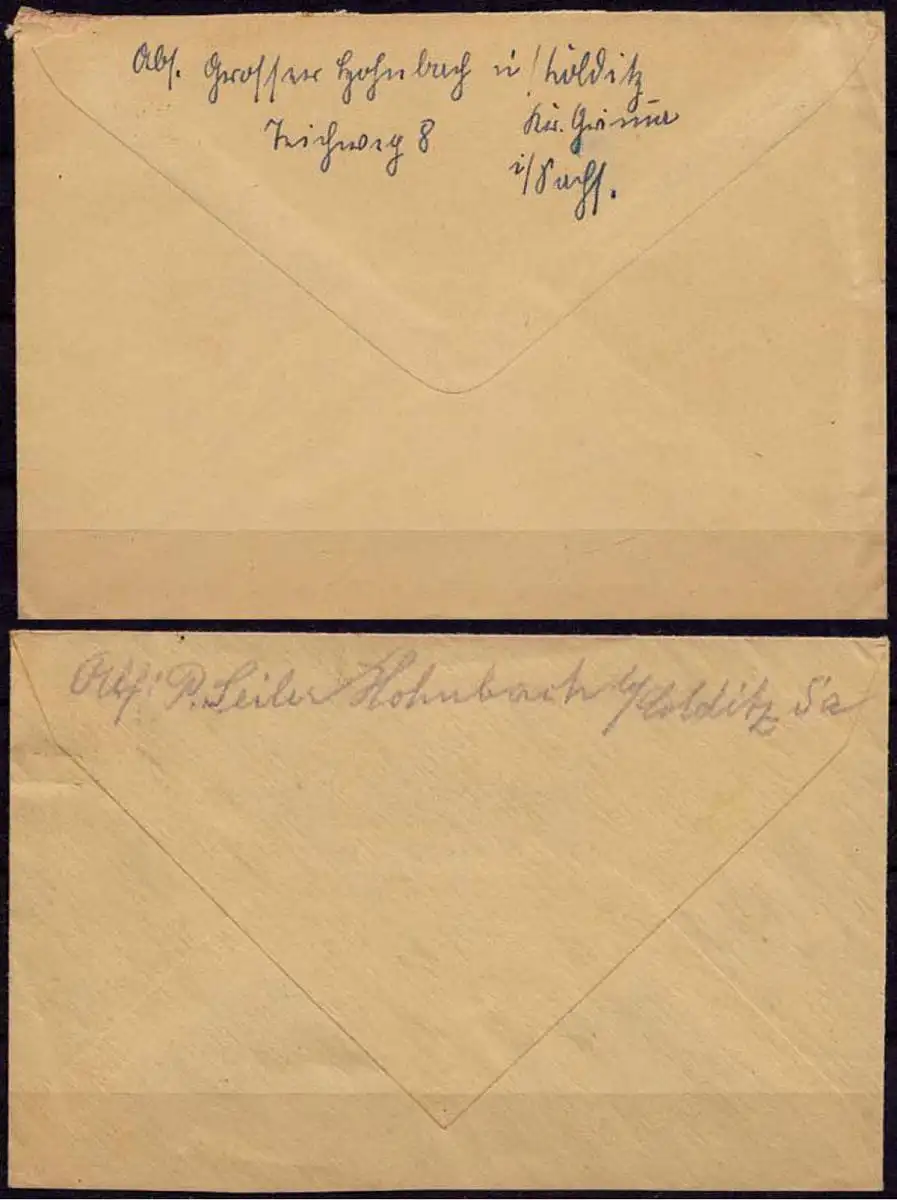 Abs. Grosser Hohnbach ü/Colditz
Teichweg 8 Kr. Grimma
i/Sachs.
Abs: P. Seiler Hohnbach b/Colditz Sa